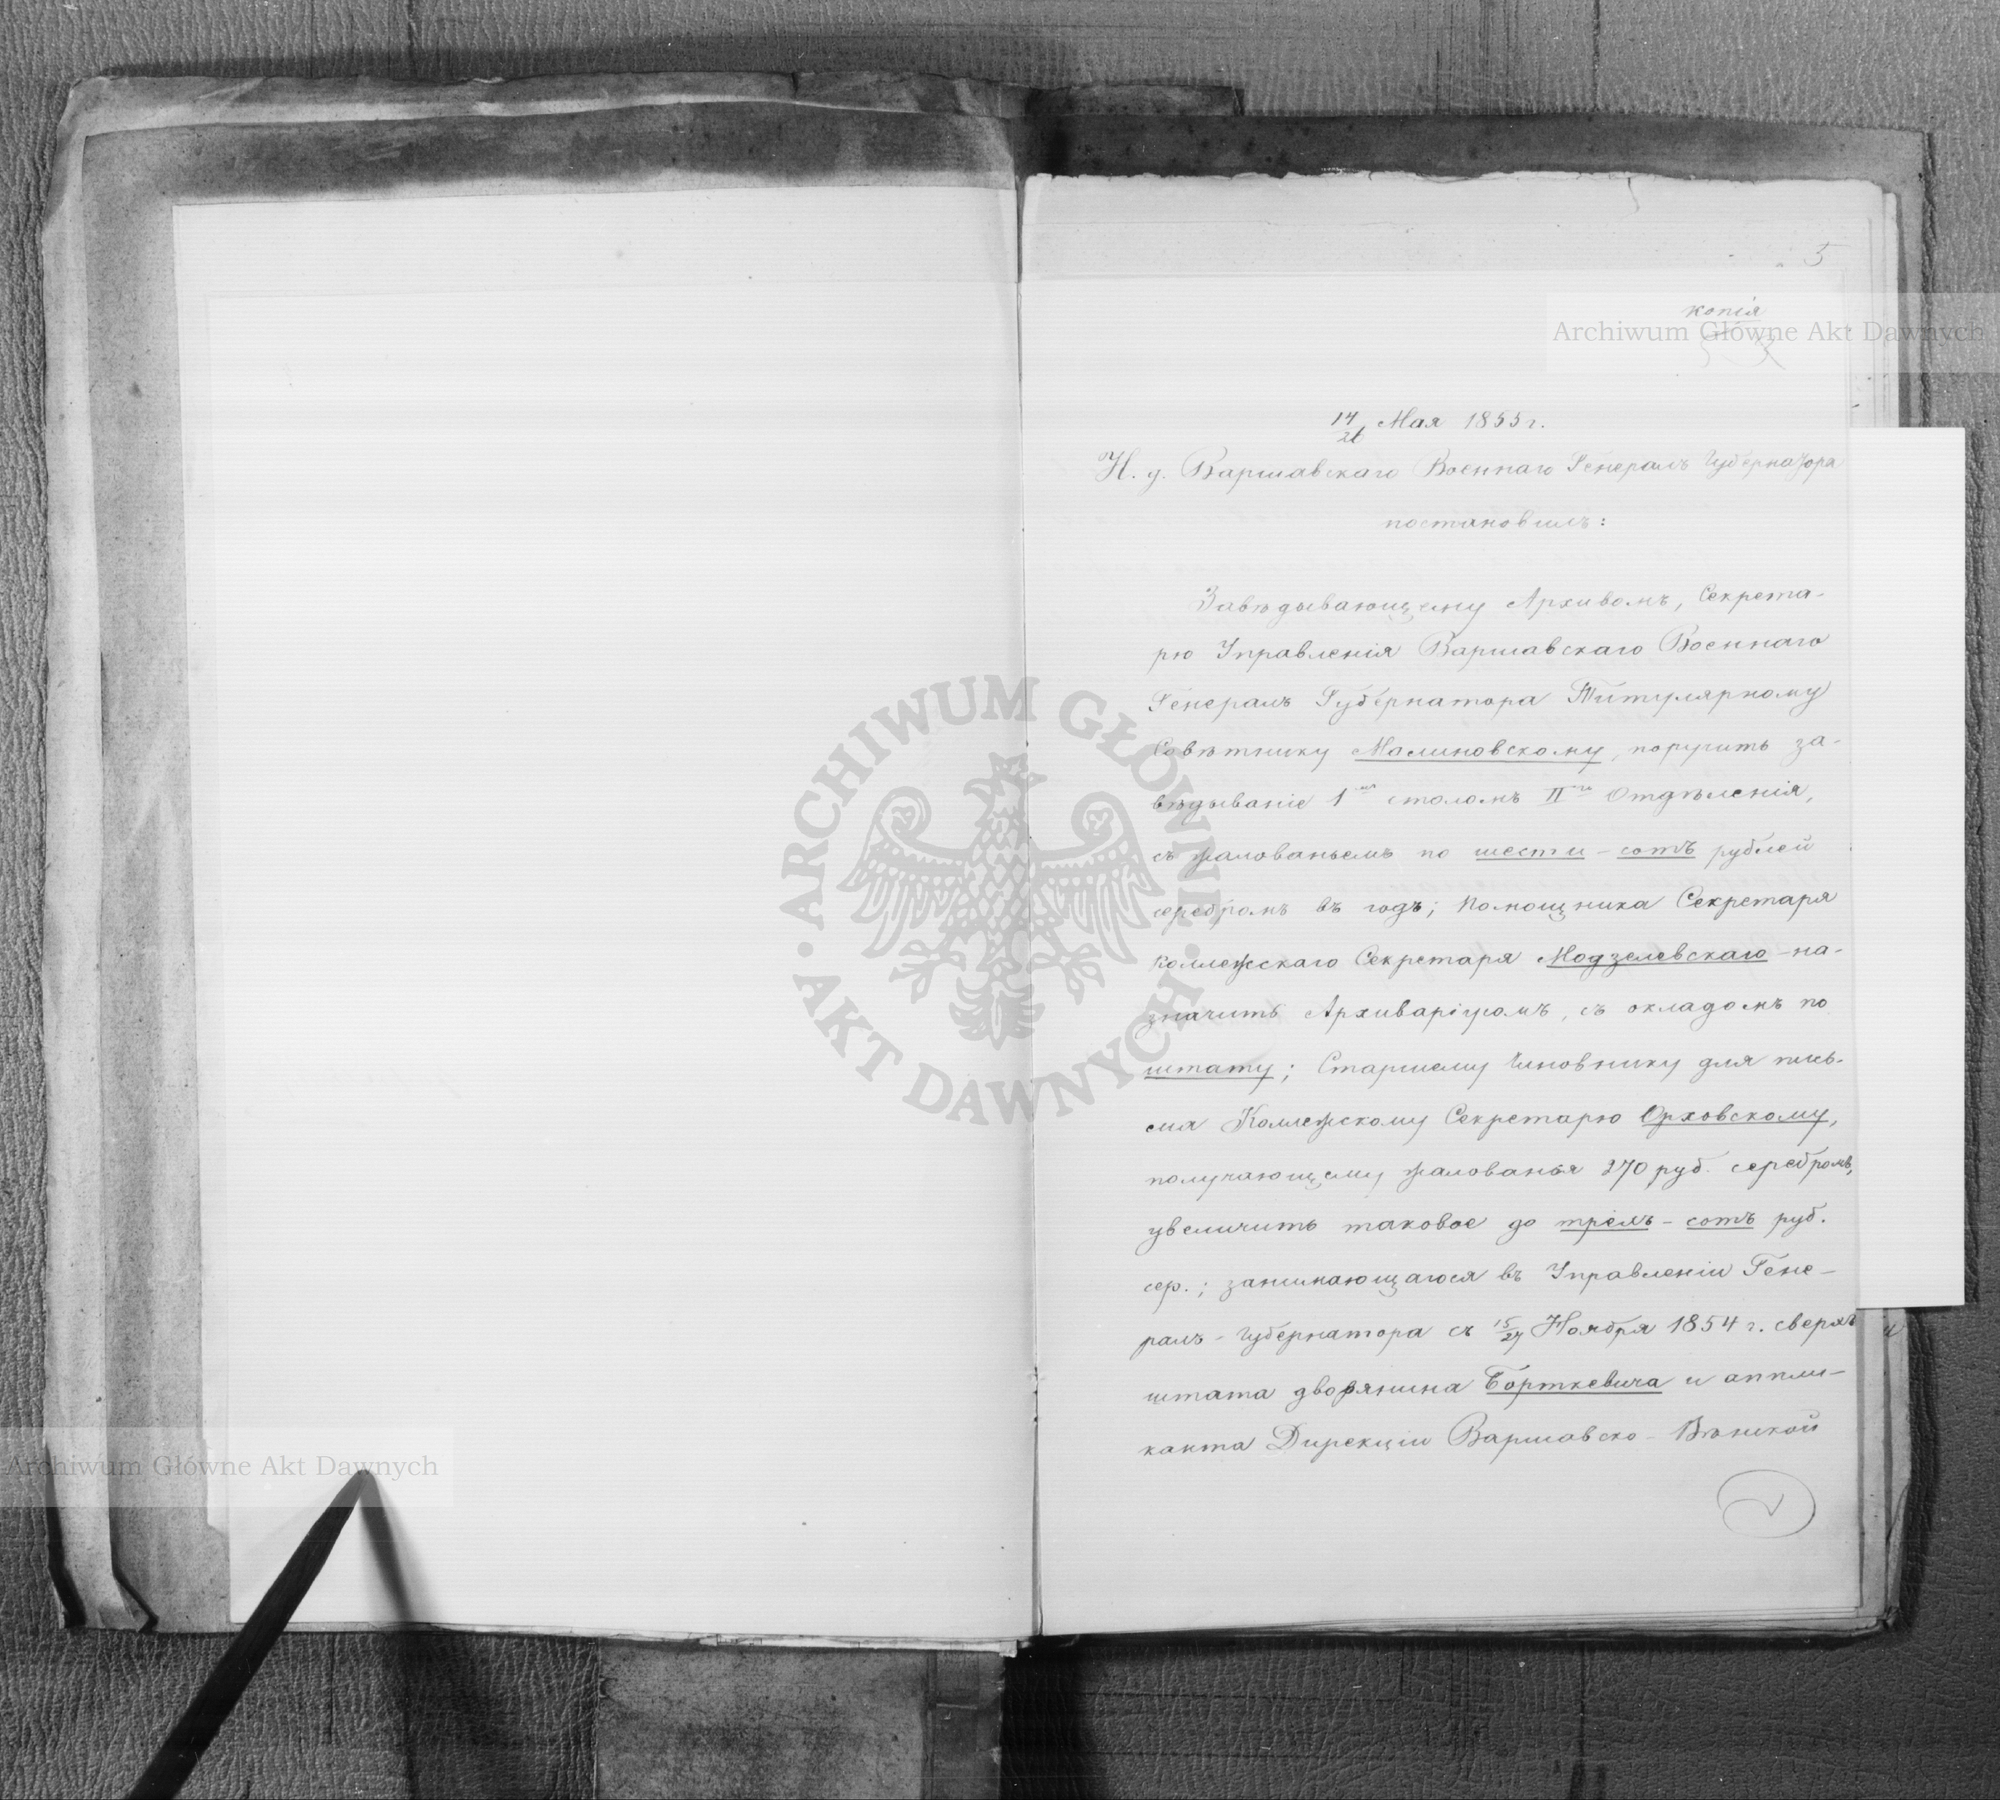 5
копія
14/26 Мая 1855 г.
И. д. Варшавскаго Военнаго Генералъ Губернатора
постановилъ:
Завѣдывающему Архивомъ, Секрета-
рю Управленія Варшавскаго Военнаго
Генералъ Губернатора Титулярному
Совѣтнику Малиновскому, поручить за-
вѣдываніе 1мъ столомъ II го Отдѣленія,
съ жалованьемъ по шести-сотъ рублей
серебромъ въ годъ; Помощника Секретаря
Коллежскаго Секретаря Модзелевскаго - на-
значить Архиваріусомъ, съ окладомъ по
штату; Старшему Чиновнику для пись-
ма Коллежскому Секретарю Орховскому,
получающему жалованья 270 руб. серебромъ,
увеличить таковое до трехъ-сотъ руб.
сер.; занимающагося въ Управленіи Гене-
ралъ-Губернатора съ 15/27 Ноября 1854 г. сверхъ
штата дворянина Борткевича и аппли-
канта Дирекціи Варшавско-Вѣнской
Archiwum Główne Akt Dawnych
Archiwum Główne Akt Dawnych
ARCHIWUM GŁÓWNE AKT DAWNYCH